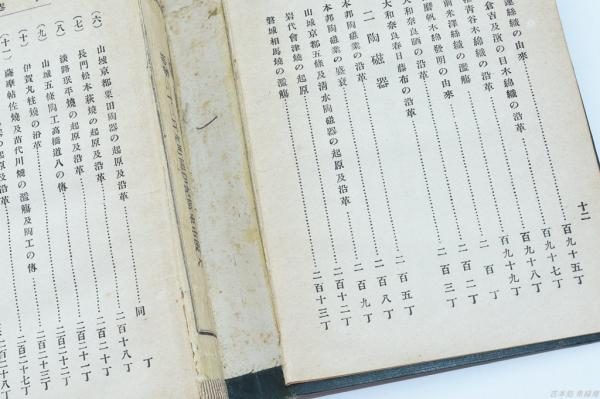 十二
蓮絲織の由來 百九十五丁
倉吉及濱の目木綿織の沿革 百九十七丁
青谷木綿織の沿革 百九十八丁
米澤絲織の濫觴 百九十九丁
帆木綿發明の由來 二百丁
大和奈良晒の沿革 二百二丁
大和奈良春日藤布の沿革 二百三丁
二 陶磁器
本邦陶磁業の沿革 二百五丁
本邦陶磁業の盛衰 二百八丁
山城京都五條及清水陶磁器の起原及沿革 二百九丁
岩代會津燒の起原 二百十二丁
磐城相馬燒の濫觴 二百十三丁
(六) 山城京都粟田陶器の起原及沿革 同 丁
(七) 長門松本萩燒の起原及沿革 二百十八丁
(八) 淡路珉平燒の起原及沿革 二百二十丁
(九) 山城五條陶工高橋道八の傳 二百二十一丁
(十) 伊賀丸柱燒の沿革 二百二十二丁
(十一) 薩摩帖佐燒及苗代川燒の濫觴及陶工の傳 二百二十三丁
の起原及沿革 二百二十七丁
二百二十八丁